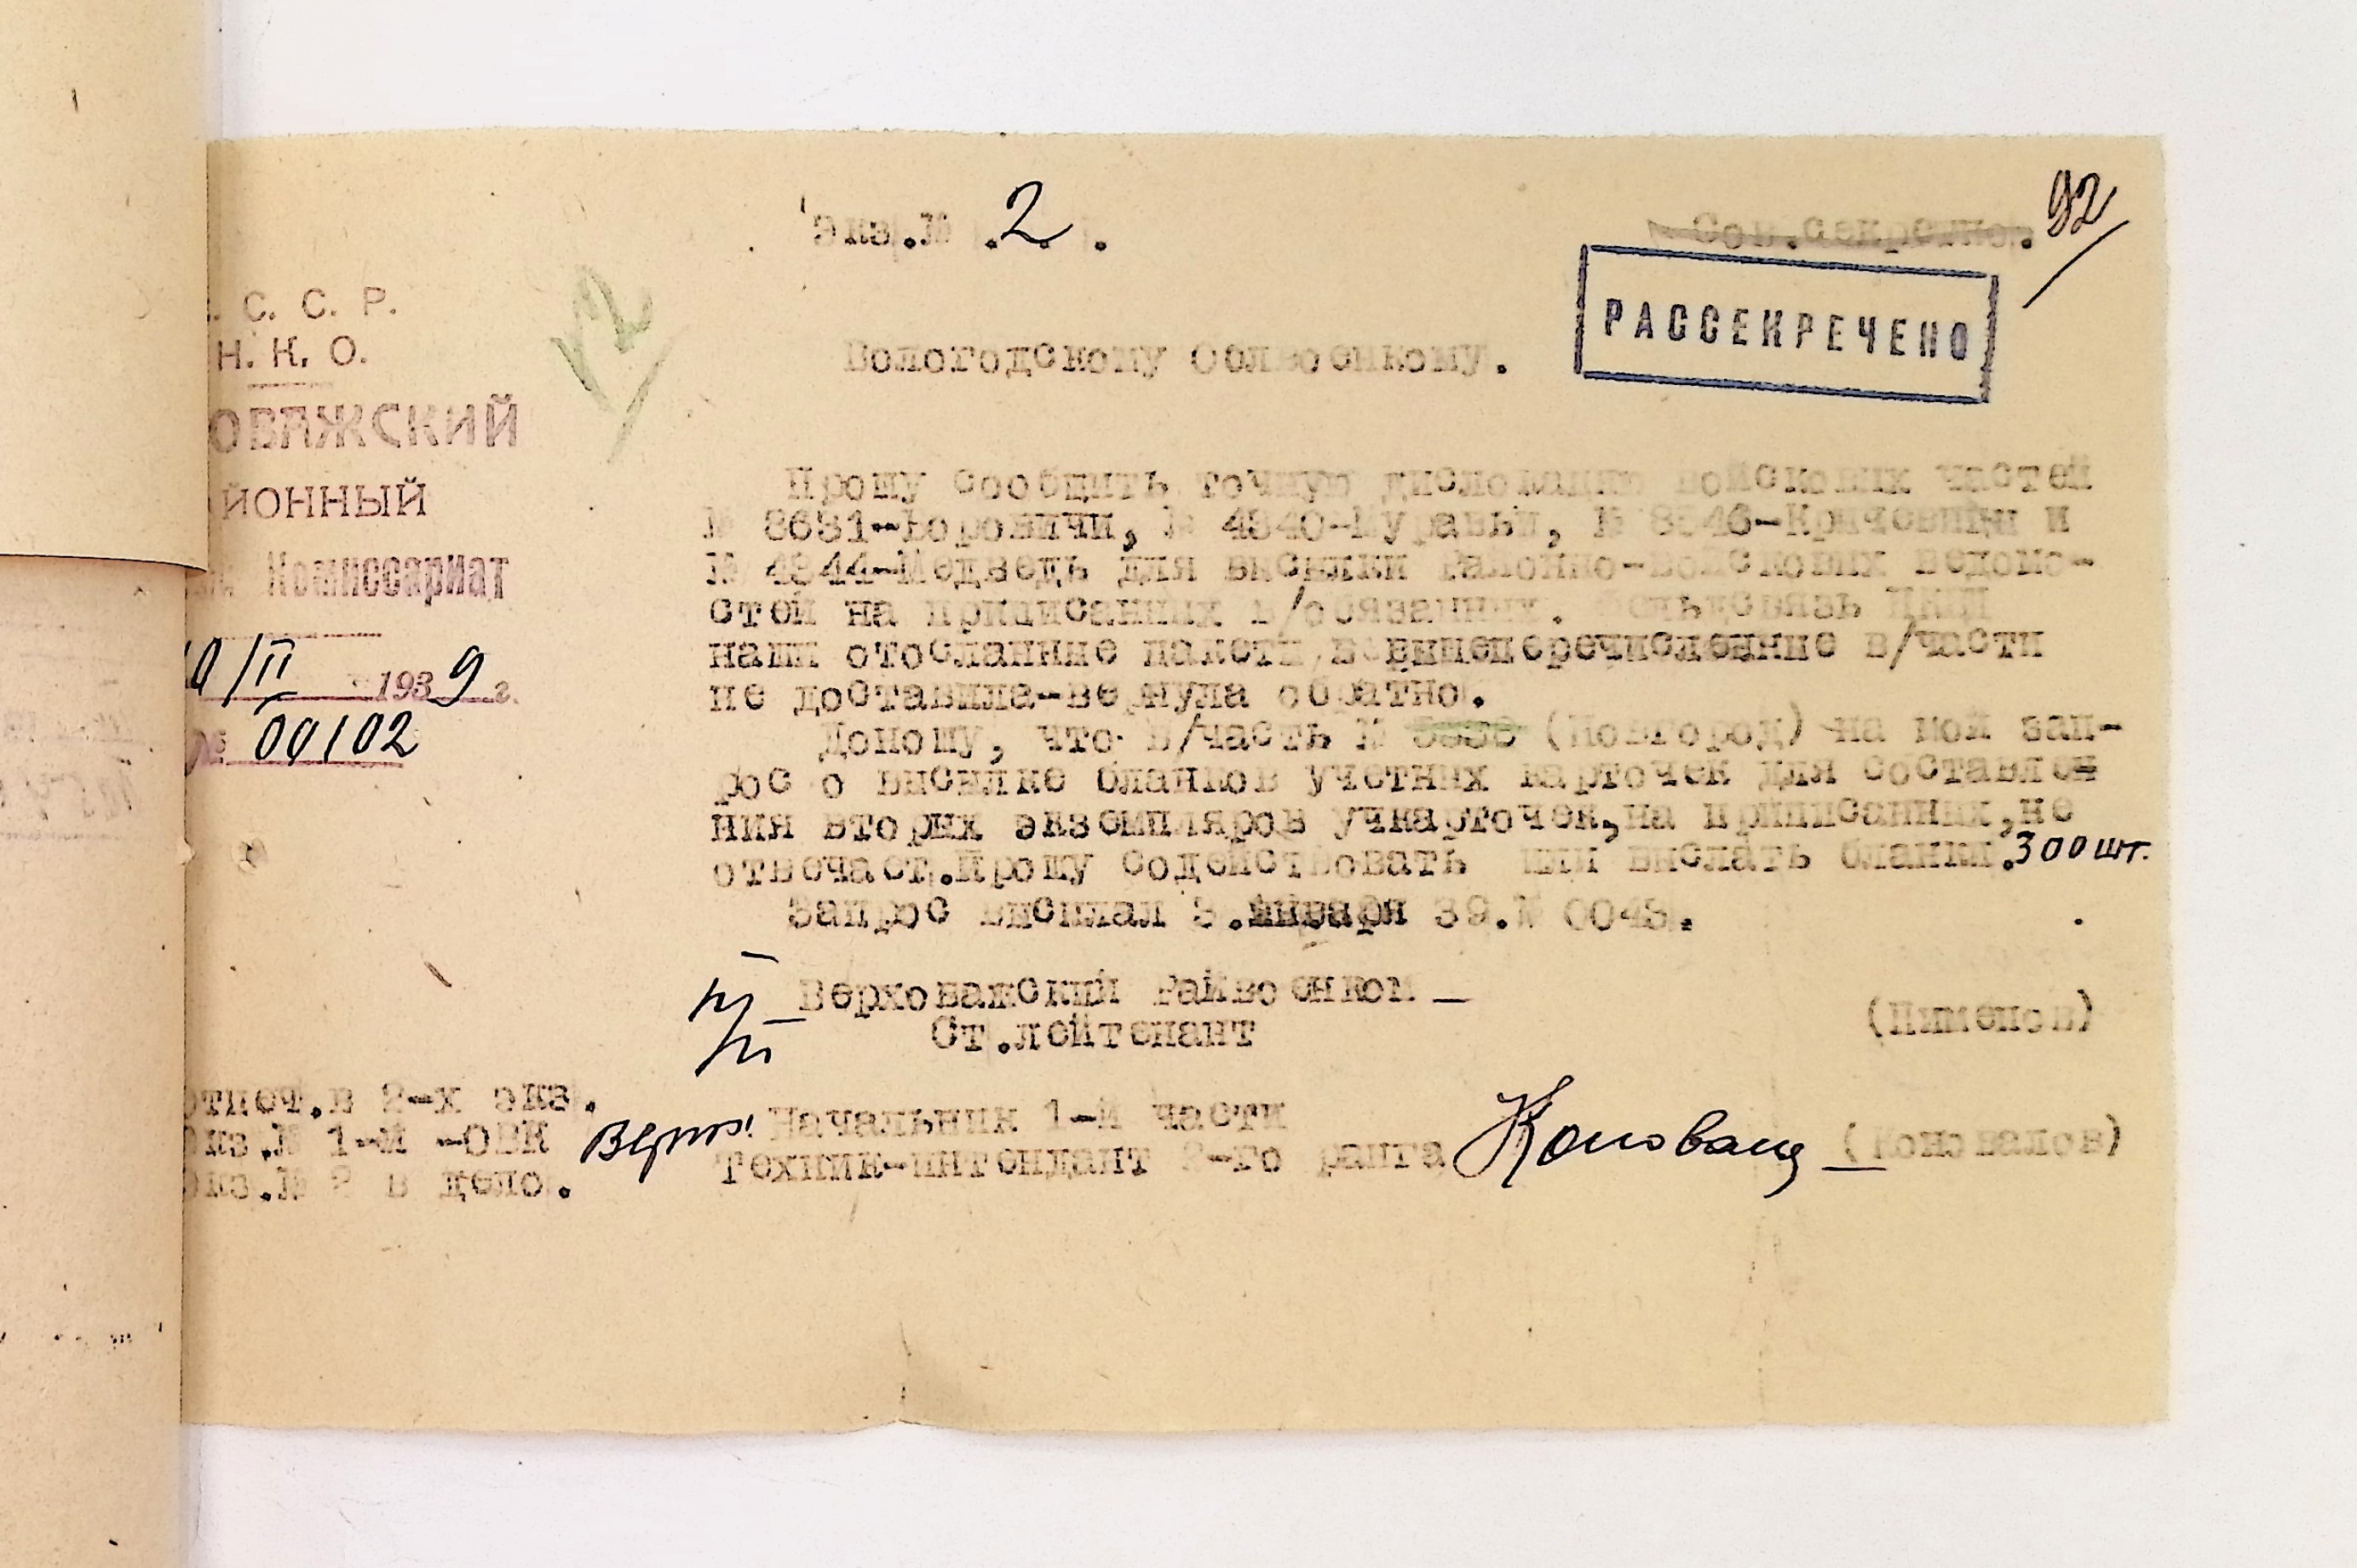 Экз.№ .2. .
Сов.секретно.
92
РАССЕКРЕЧЕНО
. С. С. Р.
Н. К. О.
ОВАЖСКИЙ
ЙОННЫЙ
Комиссариат
/II 1939 г.
№ 00102
12
Вологодскому Облвоенкому.
Прошу сообщить точную дислокацию войсковых частей
№ 8631-Боровичи, № 4940-Муравьи, № 8546-Кричевицы и
№ 4944-Медведь для высылки районно-войсковых ведомо-
стей на приписанных в/обязанных. Фельдсвязь
наши отосланные пакеты в вышеперечисленные в/части
не доставила-вернула обратно.
Доношу, что в/часть № (Новгород) на мой зап-
рос о высылке бланков учетных карточек для составлен
ния вторых экземпляров учкарточек,на приписанных,не
отвечает.Прошу содействовать или выслать бланки.300 шт.
Запрос высылал 3.января 39.№ 0043.
Верховажский Райвоенком
Ст.лейтенант
(Пименов)
Отпеч.в 2-х экз.
Экз.№ 1-й -ОВК
Экз.№ 2 в дело.
Верно: Начальник 1-й части
Техник-интендант 2-го ранга Коновалов (Коновалов)